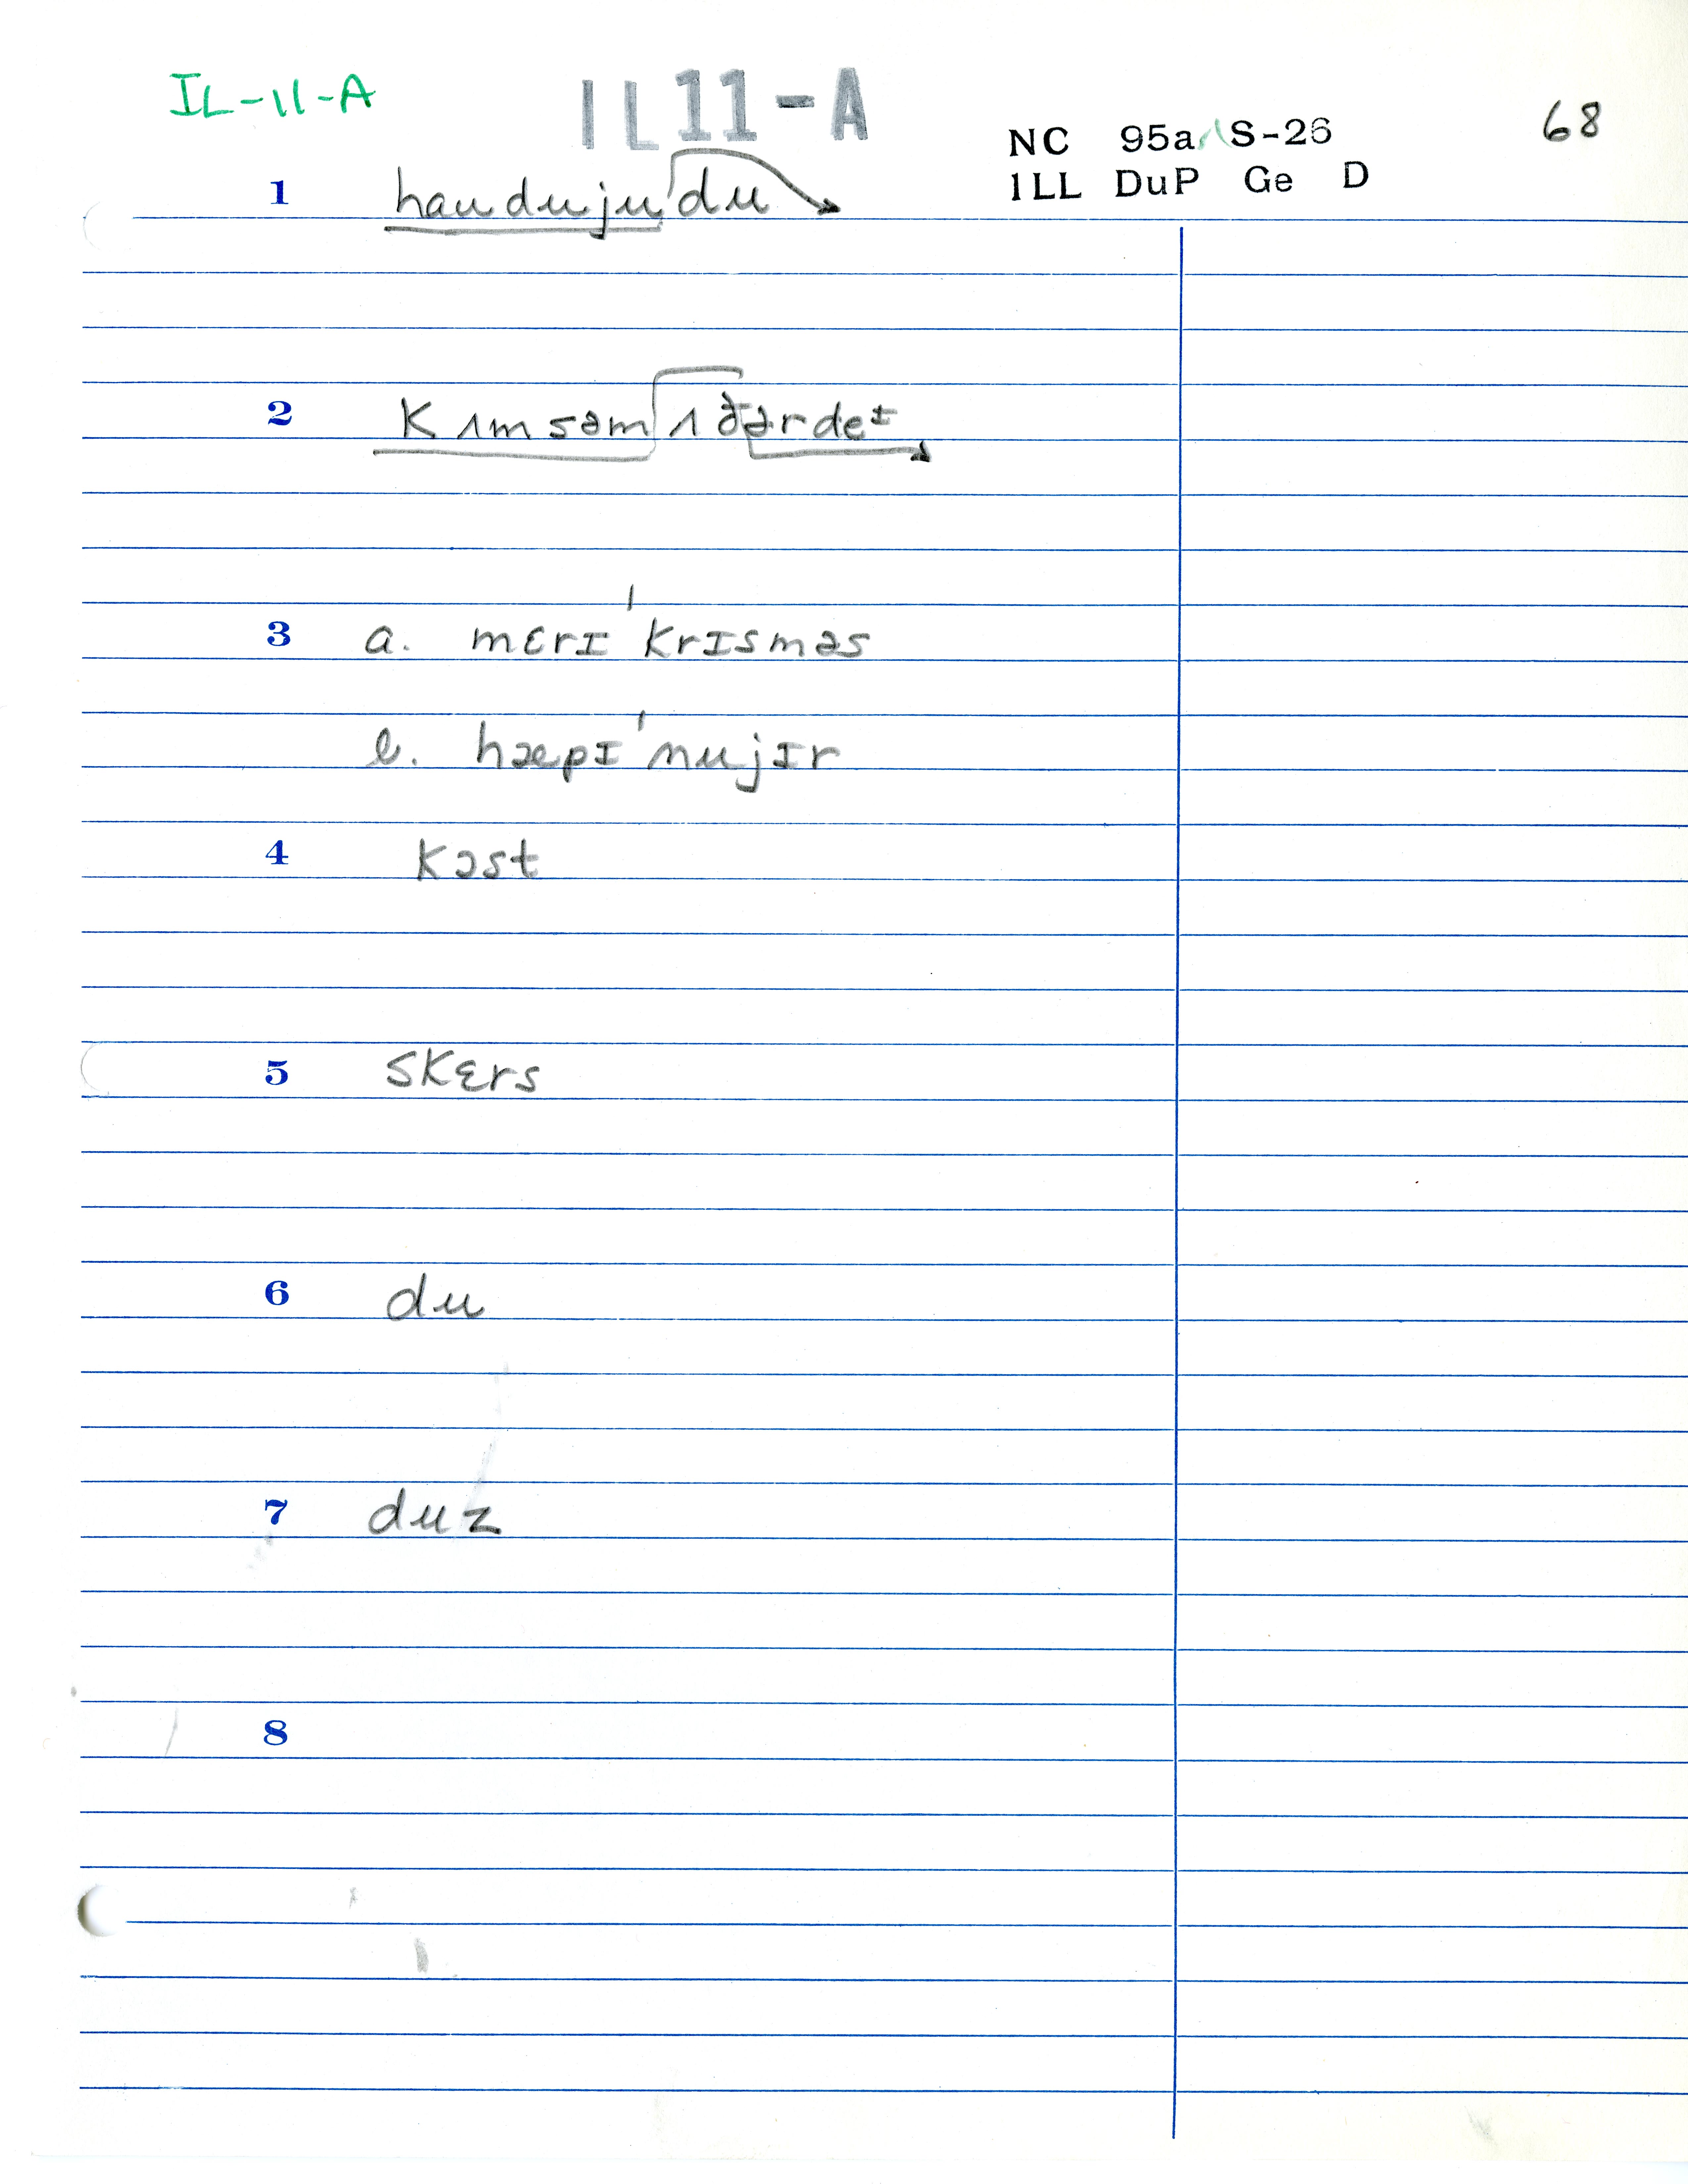 IL-11-A
IL11-A
68
NC 95a S-26
1LL DuP Ge D
1 haudujudu
2 kʌmsəmʌðərdeɪ
3 a. mɛrɪ ˈkrɪsməs
b. hæpɪ ˈnujɪr
4 kɔst
5 skɛrs
6 du
7 duz
8